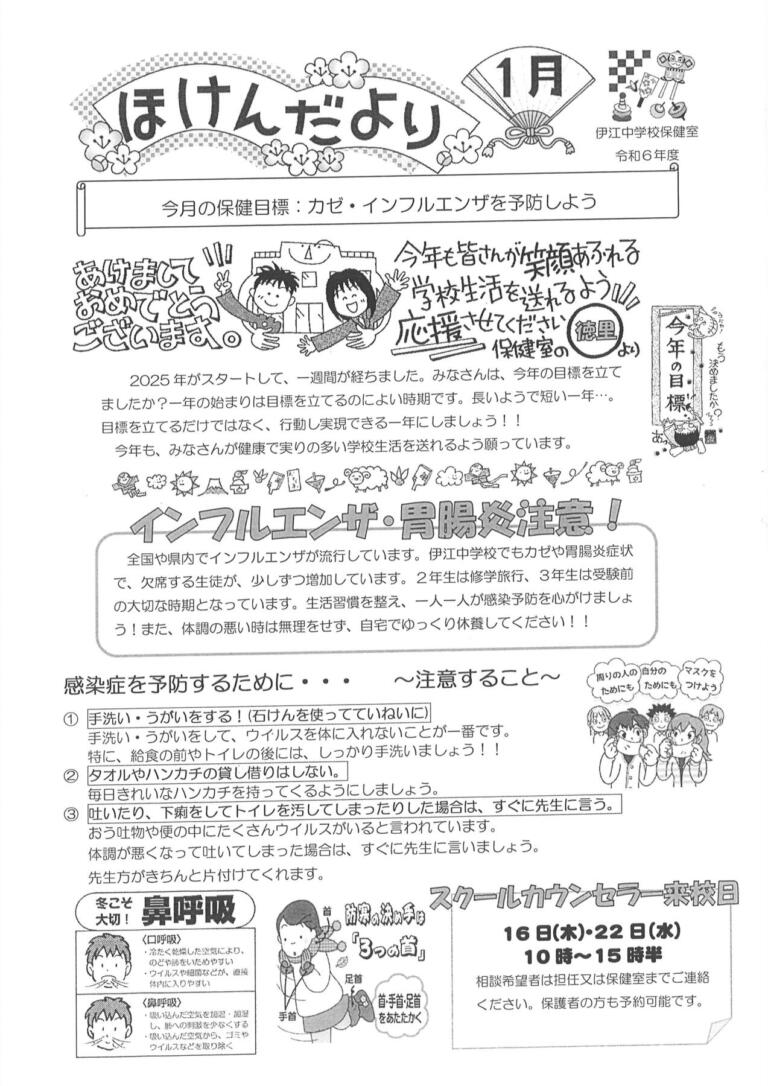 ほけんだより
1月
伊江中学校保健室
令和6年度
今月の保健目標：カゼ・インフルエンザを予防しよう
あけまして
おめでとう
ございます。
今年も皆さんが笑顔あふれる
学校生活を送れるよう!!!
応援させてください
保健室の徳里より
今年の目標
もう決めましたか？
2025年がスタートして、一週間が経ちました。みなさんは、今年の目標を立て
ましたか？一年の始まりは目標を立てるのによい時期です。長いようで短い一年…。
目標を立てるだけではなく、行動し実現できる一年にしましょう！！
今年も、みなさんが健康で実りの多い学校生活を送れるよう願っています。
インフルエンザ・胃腸炎注意！
全国や県内でインフルエンザが流行しています。伊江中学校でもカゼや胃腸炎症状
で、欠席する生徒が、少しずつ増加しています。２年生は修学旅行、３年生は受験前
の大切な時期となっています。生活習慣を整え、一人一人が感染予防を心がけましょ
う！また、体調の悪い時は無理をせず、自宅でゆっくり休養してください！！
感染症を予防するために・・・　～注意すること～
周りの人のためにも
自分のためにも
マスクをつけよう
① 手洗い・うがいをする！(石けんを使ってていねいに)
手洗い・うがいをして、ウイルスを体に入れないことが一番です。
特に、給食の前やトイレの後には、しっかり手洗いましょう！！
② タオルやハンカチの貸し借りはしない。
毎日きれいなハンカチを持ってくるようにしましょう。
③ 吐いたり、下痢をしてトイレを汚してしまったりした場合は、すぐに先生に言う。
おう吐物や便の中にたくさんウイルスがいると言われています。
体調が悪くなって吐いてしまった場合は、すぐに先生に言いましょう。
先生方がきちんと片付けてくれます。
冬こそ大切！ 鼻呼吸
＜口呼吸＞
・冷たく乾燥した空気により、
のどや肺をいためやすい
・ウイルスや細菌などが、直接
体内に入りやすい
＜鼻呼吸＞
・吸い込んだ空気を加温・加湿
し、肺への刺激を少なくする
・吸い込んだ空気から、ゴミや
ウイルスなどを取り除く
防寒の決め手は
「3つの首」
首
足首
手首
首・手首・足首
をあたたかく
スクールカウンセラー来校日
16日(木)・22日(水)
10時～15時半
相談希望者は担任又は保健室までご連絡
ください。保護者の方も予約可能です。